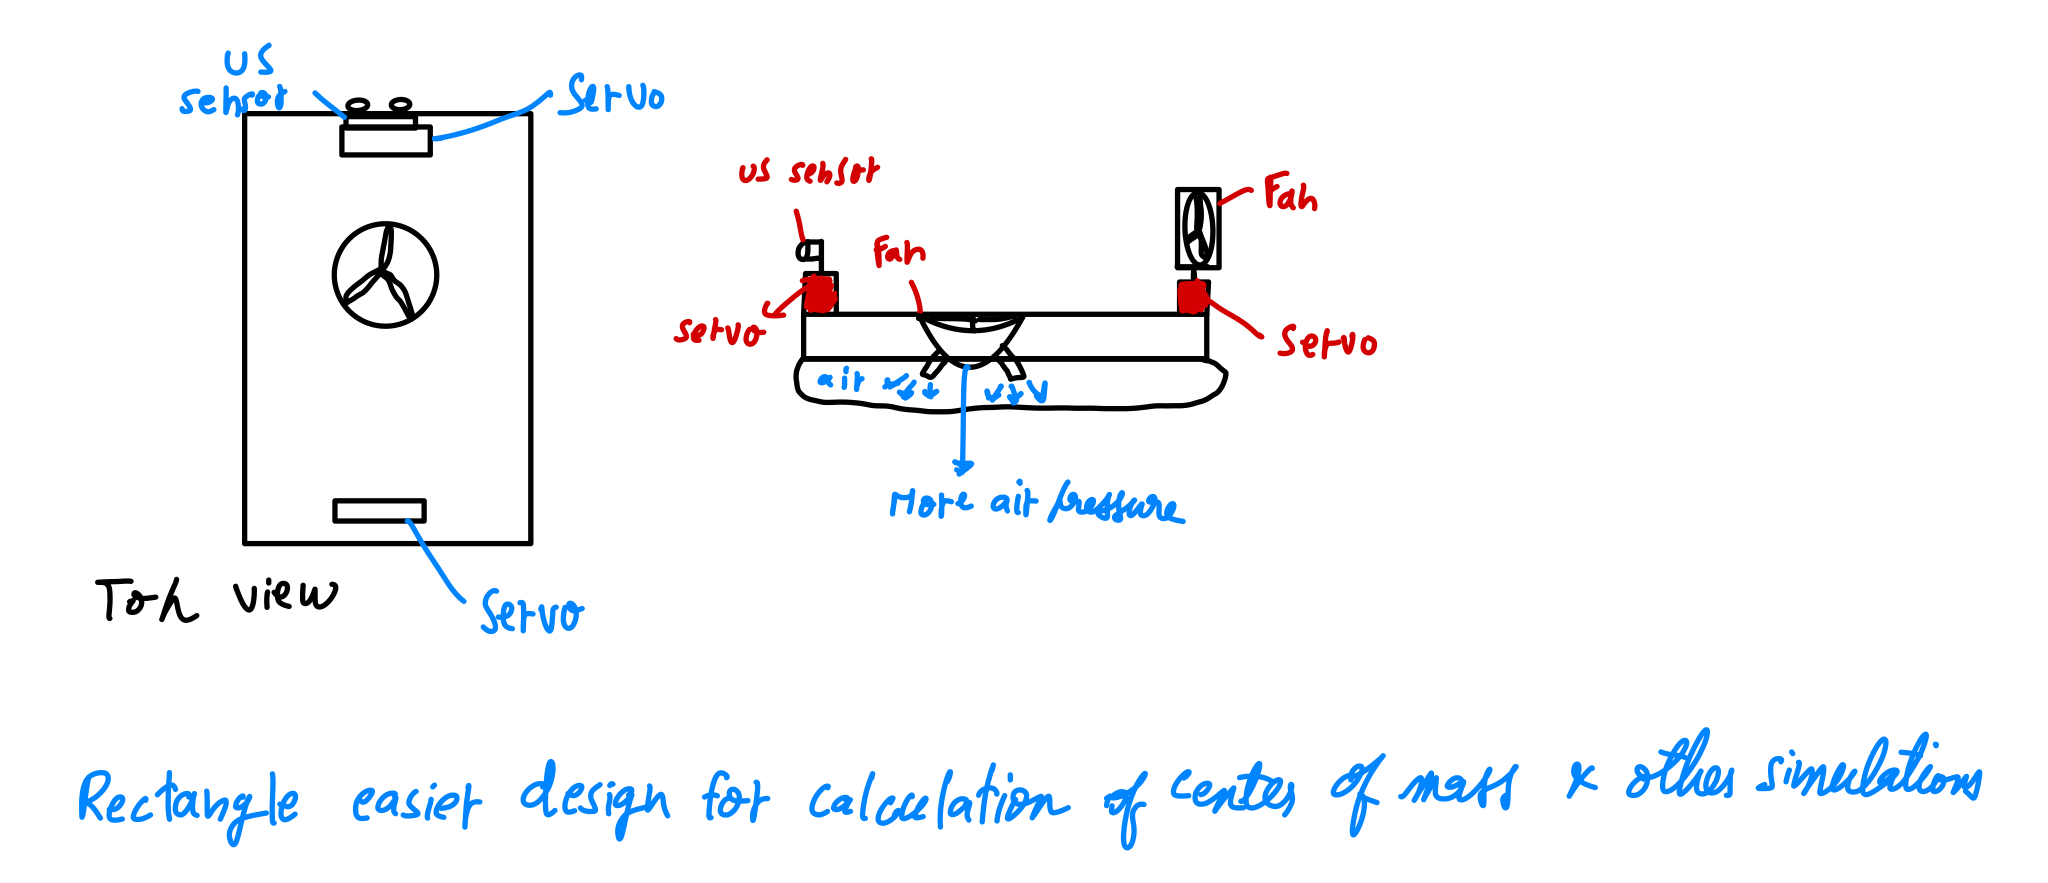 US
sensor
Servo
Servo
Top view
us sensor
Fan
servo
Fan
Servo
air
More air pressure
Rectangle easier design for calculation of center of mass & other simulations